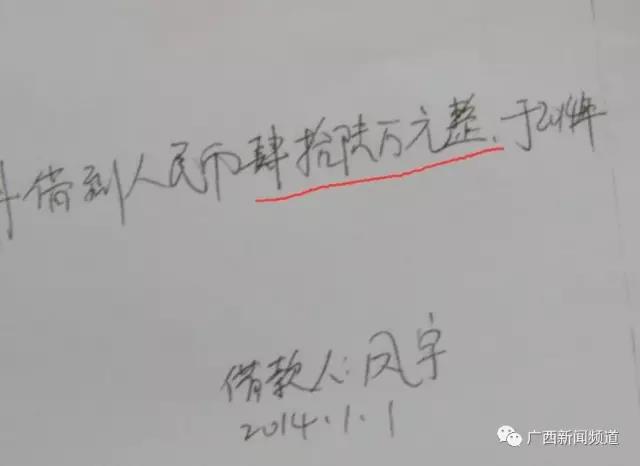 借到人民币肆拾陆万元整.于2014年
借款人:风宇
2014.1.1
广西新闻频道